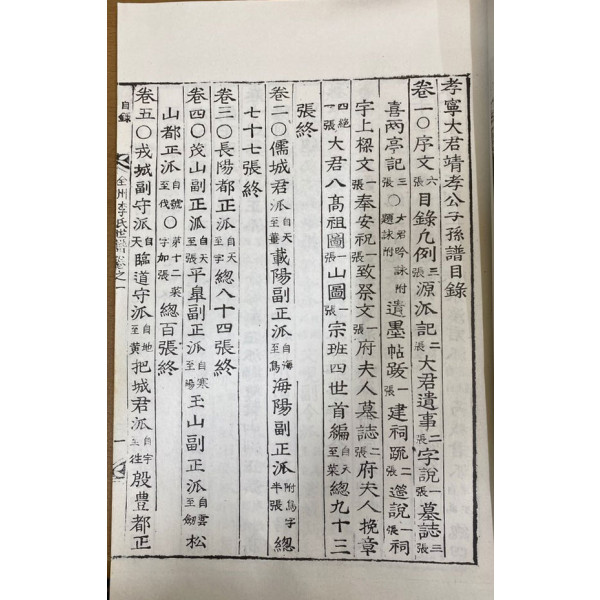 孝寧大君靖孝公子孫譜目錄
卷一〇序文六張目錄凡例三張源派記二張大君遺事二張字說一張墓誌三張
喜雨亭記三張〇大君吟詠附題詠附遺墨帖跋一張建祠疏二張遷說一張祠
宇上樑文一張奉安祝一張致祭文一張府夫人墓誌二張府夫人挽章
四絕一張大君八高祖圖一張山圖一張宗班四世首編自天至菜總九十三
張終
卷二〇儒城君派自天至薑載陽副正派自海至爲海陽副正派附爲字半張總
七十七張終
卷三〇長陽都正派自天至字總八十四張終
卷四〇茂山副正派自天至張平皐副正派自寒至陽玉山副正派自雲至劒松
山都正派自號至伐〇第十二菜字加張總百張終
卷五〇戎城副守派自天臨道守派自地至黃把城君派自宇至往殷豊都正
目錄
全州李氏世譜卷之一
一